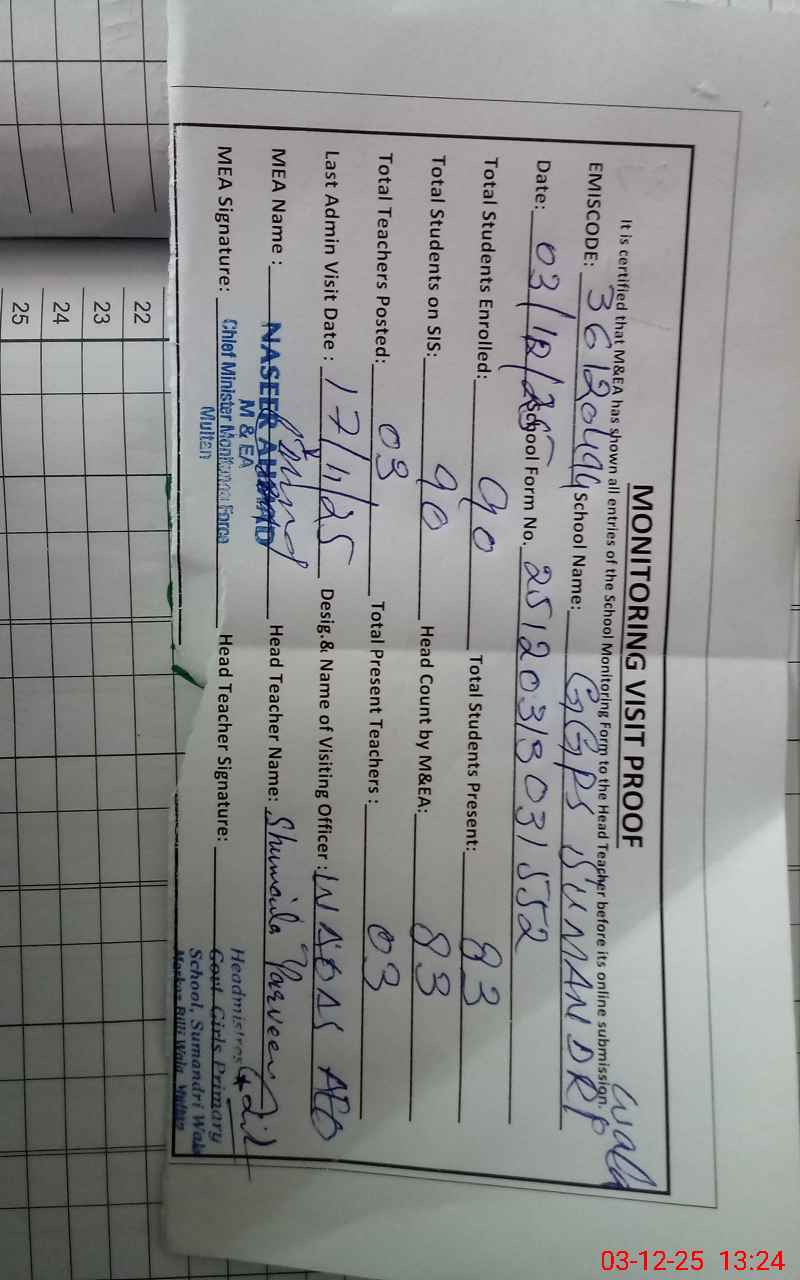 MONITORING VISIT PROOF
It is certified that M&EA has shown all entries of the School Monitoring Form to the Head Teacher before its online submission.
EMISCODE: School Name: GGPS SUMANDRI Wala
Date: 03/12/25 School Form No. 25120313031552
Total Students Enrolled: 90 Total Students Present: 83
Total Students on SIS: 90 Head Count by M&EA: 83
Total Teachers Posted: 03 Total Present Teachers : 03
Last Admin Visit Date : 17/11/25 Desig.& Name of Visiting Officer : AEO
MEA Name : NASEER AHMAD Head Teacher Name: Shumaila Parveen
M & EA
MEA Signature: Chief Minister Monitoring Force Head Teacher Signature:
Multan
Headmistres
Govt. Girls Primary
School, Sumandri Wala
Markaz Billi Wala, Multan
22
23
24
25
03-12-25 13:24